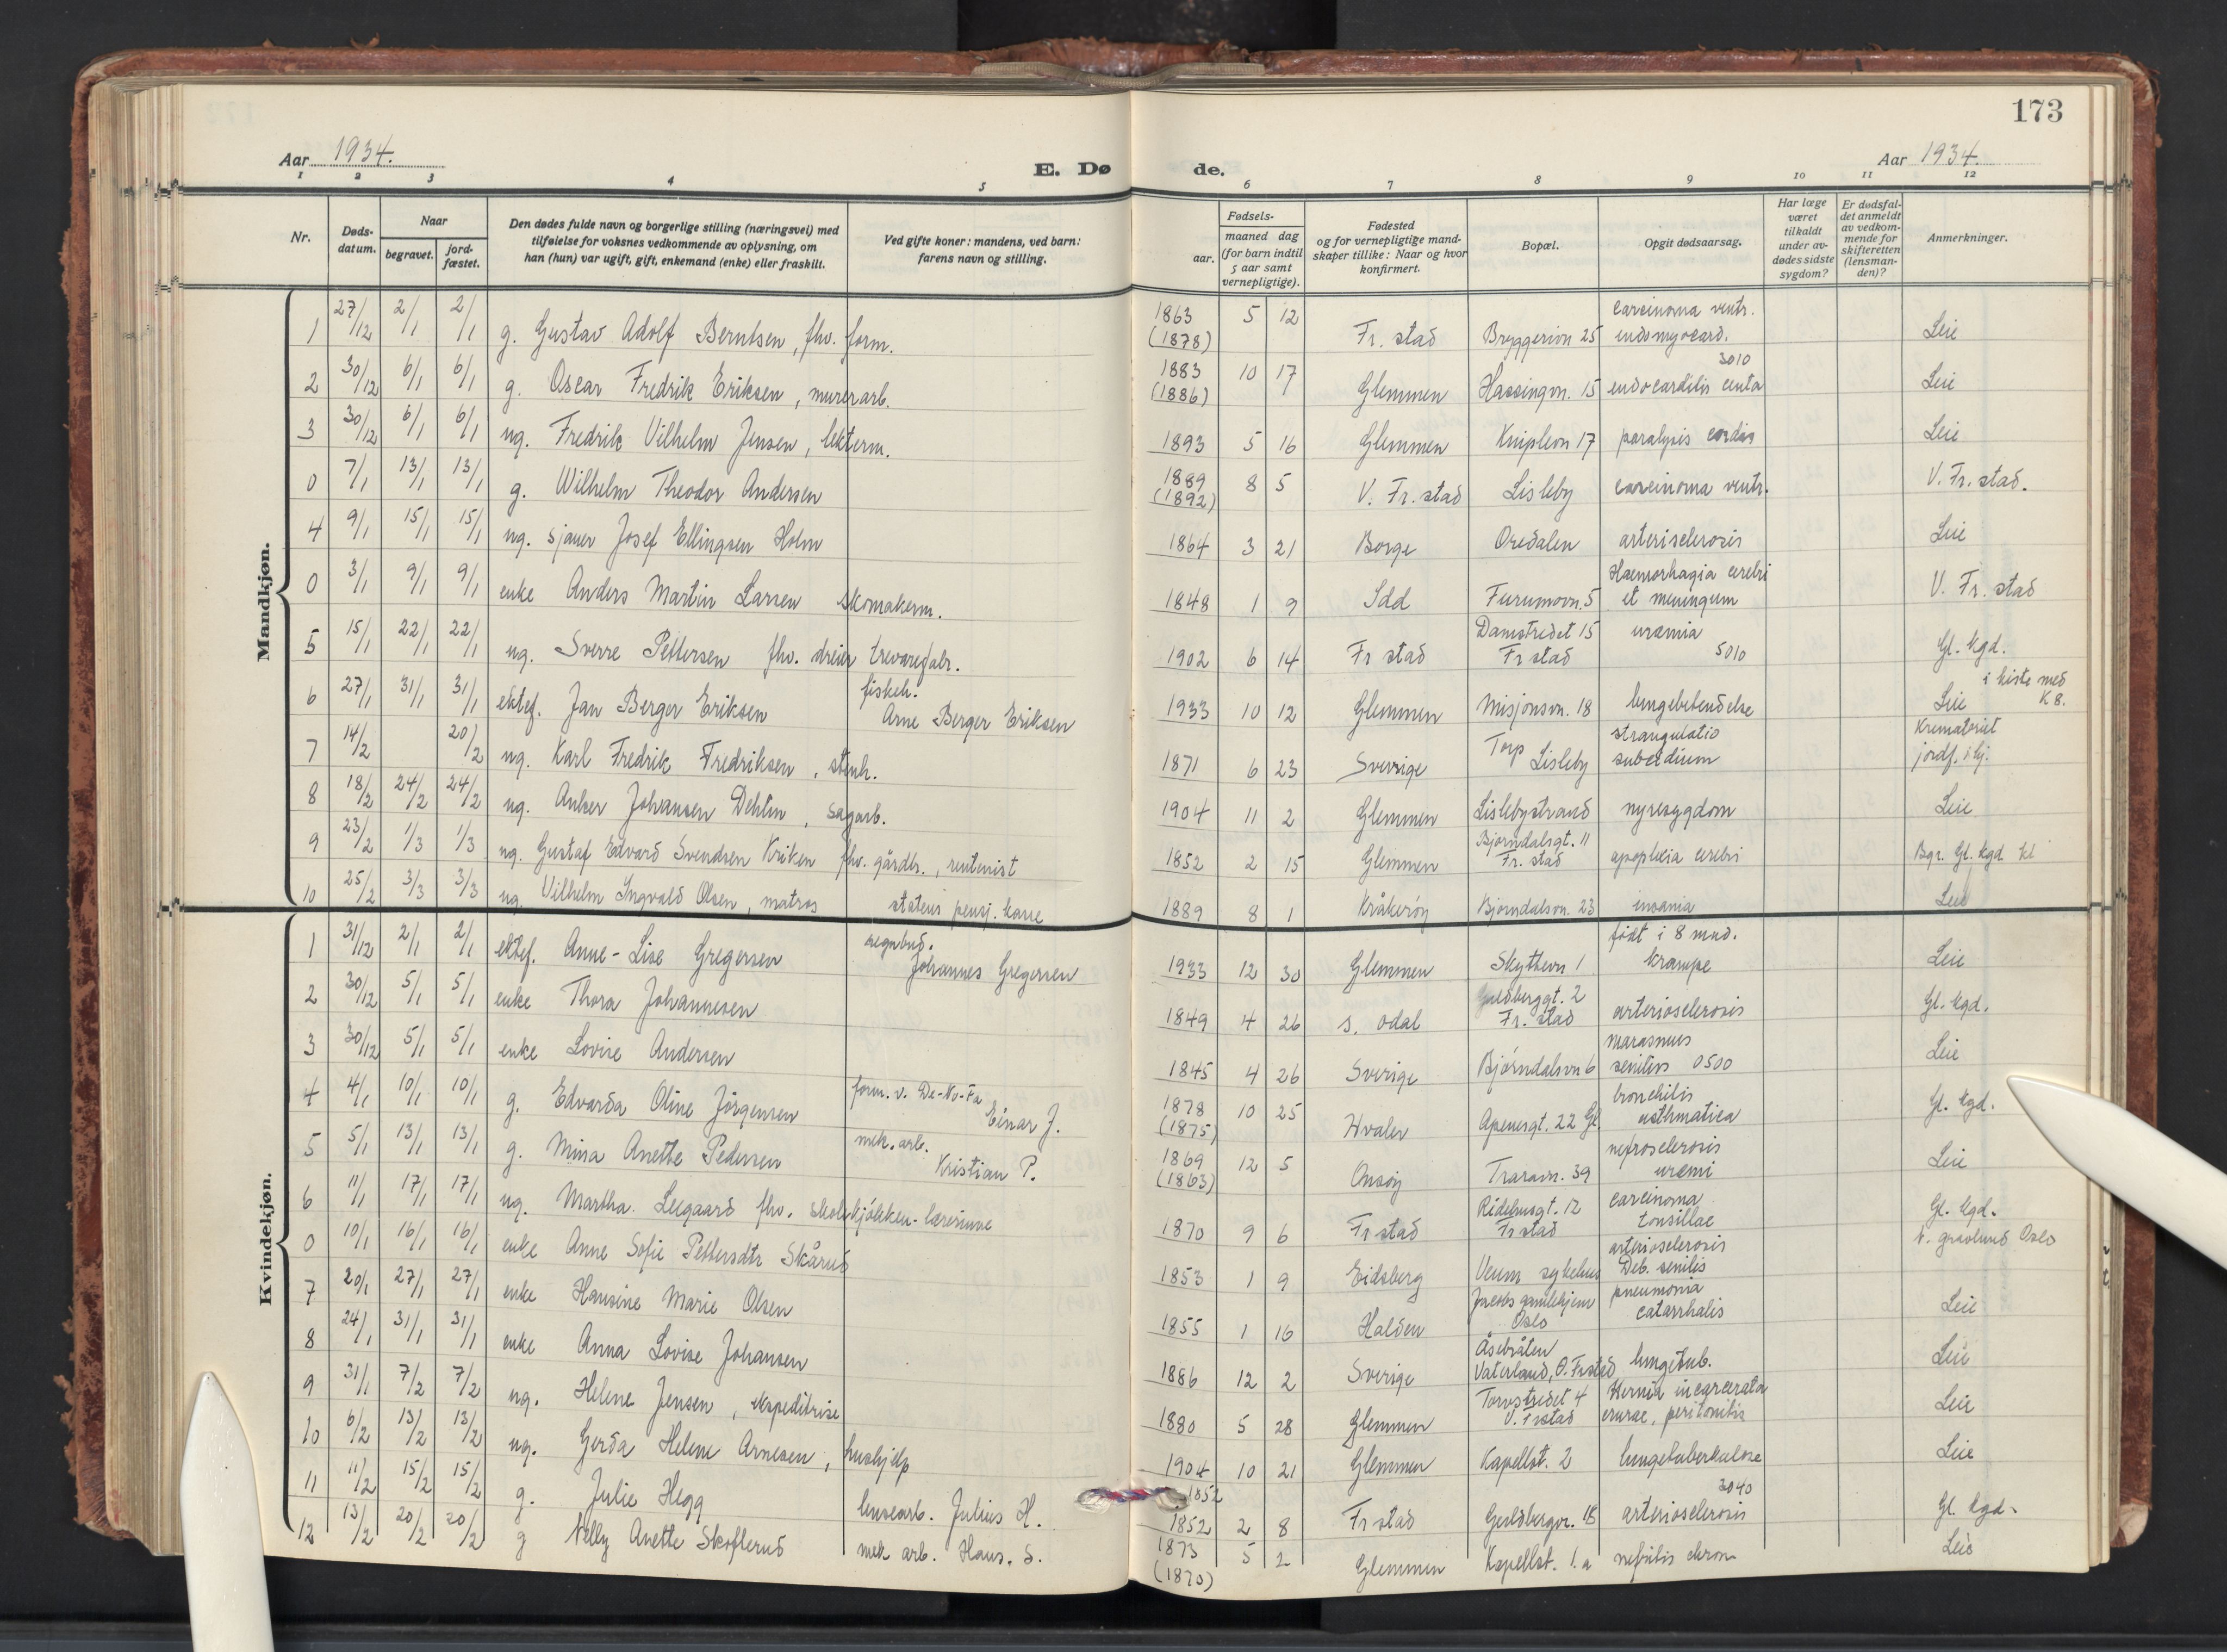 173
Aar 1934.
E. Dø de.
Aar 1934.
1 2 3 4 5 6 7 8 9 10 11 12
Nr.
Døds-
datum.
Naar
begravet.
jord-
fæstet.
Den dødes fulde navn og borgerlige stilling (næringsvei) med
tilføielse for voksnes vedkommende av oplysning, om
han (hun) var ugift, gift, enkemand (enke) eller fraskilt.
Ved gifte koner: mandens, ved barn:
farens navn og stilling.
Fødsels-
aar.
maaned dag
(for barn indtil
5 aar samt
vernepligtige).
Fødested
og for vernepligtige mand-
skaper tillike: Naar og hvor
konfirmert.
Bopæl.
Opgit dødsaarsag.
Har læge
været
tilkaldt
under av-
dødes sidste
sygdom?
Er dødsfal-
det anmeldt
av vedkom-
mende for
skifteretten
(lensman-
den)?
Anmerkninger.
Mandkjøn.
1 27/12 2/1 2/1 g. Gustav Adolf Berntsen, fhv. form. 1863 (1878) 5 12 Fr. stad Bryggerivn 25 carcinoma ventr. endomyocard. Leie
2 30/12 6/1 6/1 g. Oscar Fredrik Eriksen, murerarb. 1883 (1886) 10 17 Glemmen Hassingvn. 15 3010 endocarditis lenta Leie
3 30/12 6/1 6/1 ug. Fredrik Vilhelm Jensen, lekterm. 1893 5 16 Glemmen Kniplevn 17 paralysis cordis Leie
0 7/1 13/1 13/1 g. Wilhelm Theodor Andersen 1889 (1892) 8 5 V. Fr. stad Lisleby carcinoma ventr. V. Fr. stad.
4 9/1 15/1 15/1 ug. sjauer Josef Ellingsen Holm 1864 3 21 Borge Oredalen arteriosclerosis Leie
0 3/1 9/1 9/1 enke Anders Martin Larsen skomakerm. 1848 1 9 Idd Furumovn. 5 Haemorhagia cerebri et meningum V. Fr. stad
5 15/1 22/1 22/1 ug. Sverre Pettersen fhv. dreier trevarefabr. 1902 6 14 Fr stad Damstredet 15 Fr stad uræmia 5010 Gl. kgd.
6 27/1 31/1 31/1 ektef. Jan Berger Eriksen fiskeh. Arne Berger Eriksen 1933 10 12 Glemmen Misjonsvn. 18 lungebetendelse Leie i kiste med K 8.
7 14/2 20/2 ug. Karl Fredrik Fredriksen, stenh. 1871 6 23 Sverige Torp Lisleby strangulatio Krematoriet jordf. i kj.
8 18/2 24/2 24/2 ug. Anker Johansen Dehlin, sagarb. 1904 11 2 Glemmen Lislebystrand nyresygdom Leie
9 23/2 1/3 1/3 ug. Gustaf Edvard Svendsen Kriken fhv. gårdbr., rentenist 1852 2 15 Glemmen Bjørndalsgt. 11 Fr. stad apoplexia cerebri Bgr. Gl. kgd kl
10 25/2 3/3 3/3 ug. Vilhelm Ingvald Olsen, matros statens pensj. kasse 1889 8 1 Kråkerøy Bjørndalsvn. 23 insania Leie
Kvindekjøn.
1 31/12 2/1 2/1 ektef. Anne-Lise Gregersen regnbud. Johannes Gregersen 1933 12 30 Glemmen Skyttervn 1 født i 8 mnd. krampe Leie
2 30/12 5/1 5/1 enke Thora Johannesen 1849 4 26 S. Odal Guldberggt. 2 Fr. stad arteriosclerosis Gl. kgd.
3 30/12 5/1 5/1 enke Lovise Andersen 1845 4 26 Sverige Bjørndalsvn 6 marasmus senilis 0500 Leie
4 4/1 10/1 10/1 g. Edvarda Oline Jørgensen form. v. De-No-Fa Einar J. 1878 (1875) 10 25 Hvaler Apenesgt. 22 Gl. bronchitis asthmatica Gl. kgd.
5 5/1 13/1 13/1 g. Mina Anette Pedersen mek. arb. Kristian P. 1869 (1863) 12 5 Onsøy Traravn. 39 nefrosclerosis uræmi Leie
6 11/1 17/1 17/1 ug. Martha Leegaard fhv. skolekjøkken-lærerinne 1870 9 6 Fr stad Ridehusgt. 12 Fr stad carcinoma tonsillae Gl. kgd.
0 10/1 16/1 16/1 enke Anne Sofie Pettersdtr Skårud 1853 1 9 Eidsberg Veum sykehus arteriosclerosis Deb. senilis V. gravlund Oslo
7 20/1 27/1 27/1 enke Hansine Marie Olsen 1855 1 16 Halden Jacobs gamlehjem Oslo pneumonia catarrhalis Leie
8 24/1 31/1 31/1 enke Anna Lovise Johansen 1886 12 2 Sverige Åsebråten Vaterland, Ø. Frstad lungetub. Leie
9 31/1 7/2 7/2 ug. Helene Jensen, ekspeditrise 1880 5 28 Glemmen Torvstredet 4 V. Frstad Hernia incarcerata crurae, peritonitis Leie
10 6/2 13/2 13/2 ug. Gerda Helene Arnesen, hushjelp 1904 10 21 Glemmen Kapellst. 2 lungetuberkulose Leie
11 11/2 15/2 15/2 g. Julie Hegg lensearb. Julius H. 1852 1852 2 8 Fr stad Guldbergvn. 18 3040 arteriosclerosis Gl. kgd.
12 13/2 20/2 20/2 g Nelly Anette Skofterud mek arb. Hans. S. 1873 (1870) 5 2 Glemmen Kapellst. 1.a nefritis chron Leie